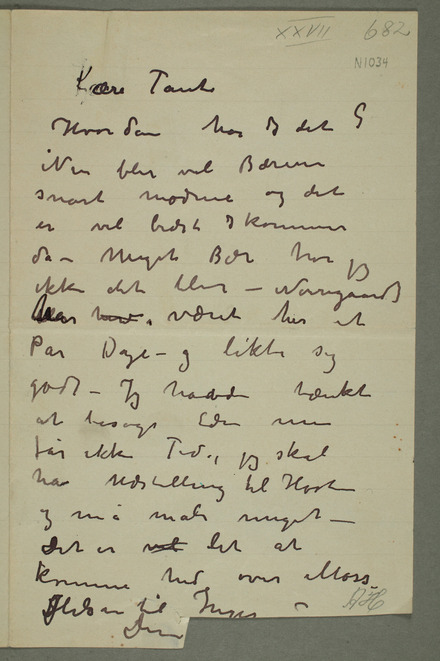 XXVII 682
N1034
Kære Tante
Hvordan har I det ?
Nu blir vel Bærene
snart modne og det
er vel bedst I kommer
da – Meget Bær har jeg
ikke det blir – Nørregaard
har været her et
Par Dage – og likte sig
godt – Jg havde tænkt
at besøge Eder men
får ikke Tid, jeg skal
ha Udstilling til Høsten
og må male meget –
Det er vel let at
komme hid over Moss –
Hilsen til Inger –
Din